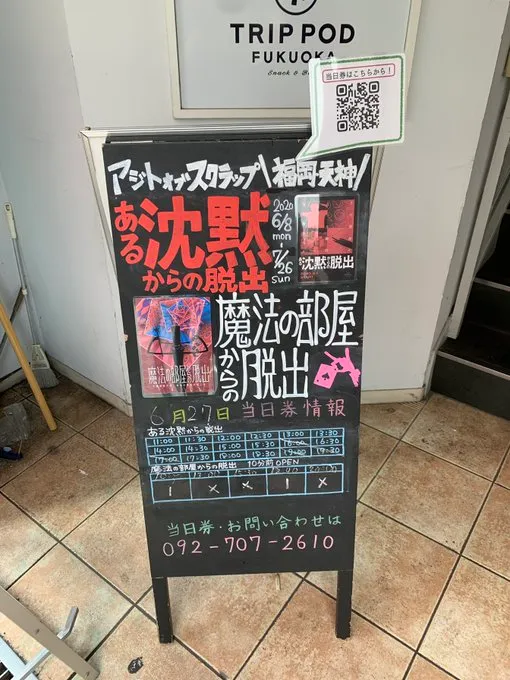 TRIP POD
FUKUOKA
当日券はこちらから！
アジトオブスクラップ\福岡・天神/
ある沈黙からの脱出
2020
6/8
mon
7/26
sun
沈黙 脱出
魔法の部屋からの脱出
魔法の部屋 脱出
6月27日 当日券情報
ある沈黙からの脱出
11:00 11:30 12:00 12:30 13:00 13:30
14:00 14:30 15:00 15:30 16:00 16:30
17:00 17:30 18:00 18:30 19:00 19:30
魔法の部屋からの脱出 10分前OPEN
当日券・お問い合わせは
092-707-2610